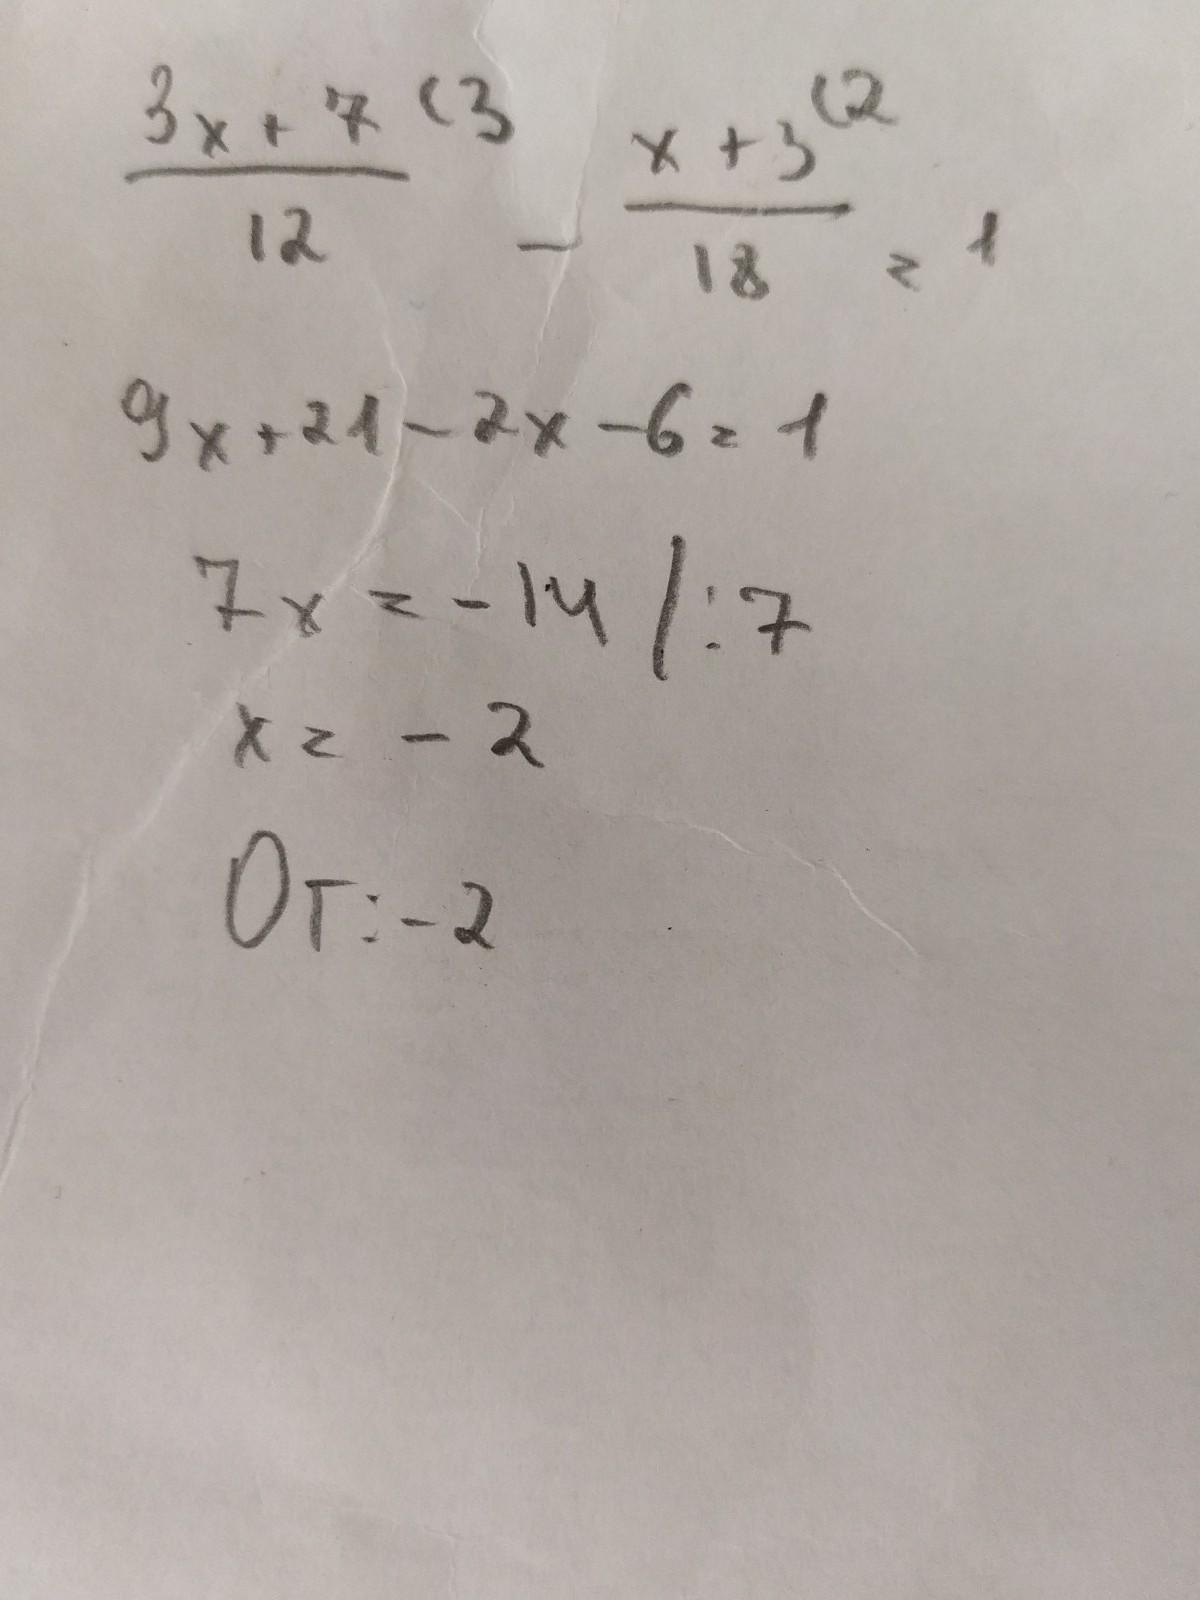 3x + 7 (3 / 12 - x + 3 (2 / 18 = 1
9x + 21 - 2x - 6 = 1
7x = - 14 / : 7
x = - 2
От: - 2